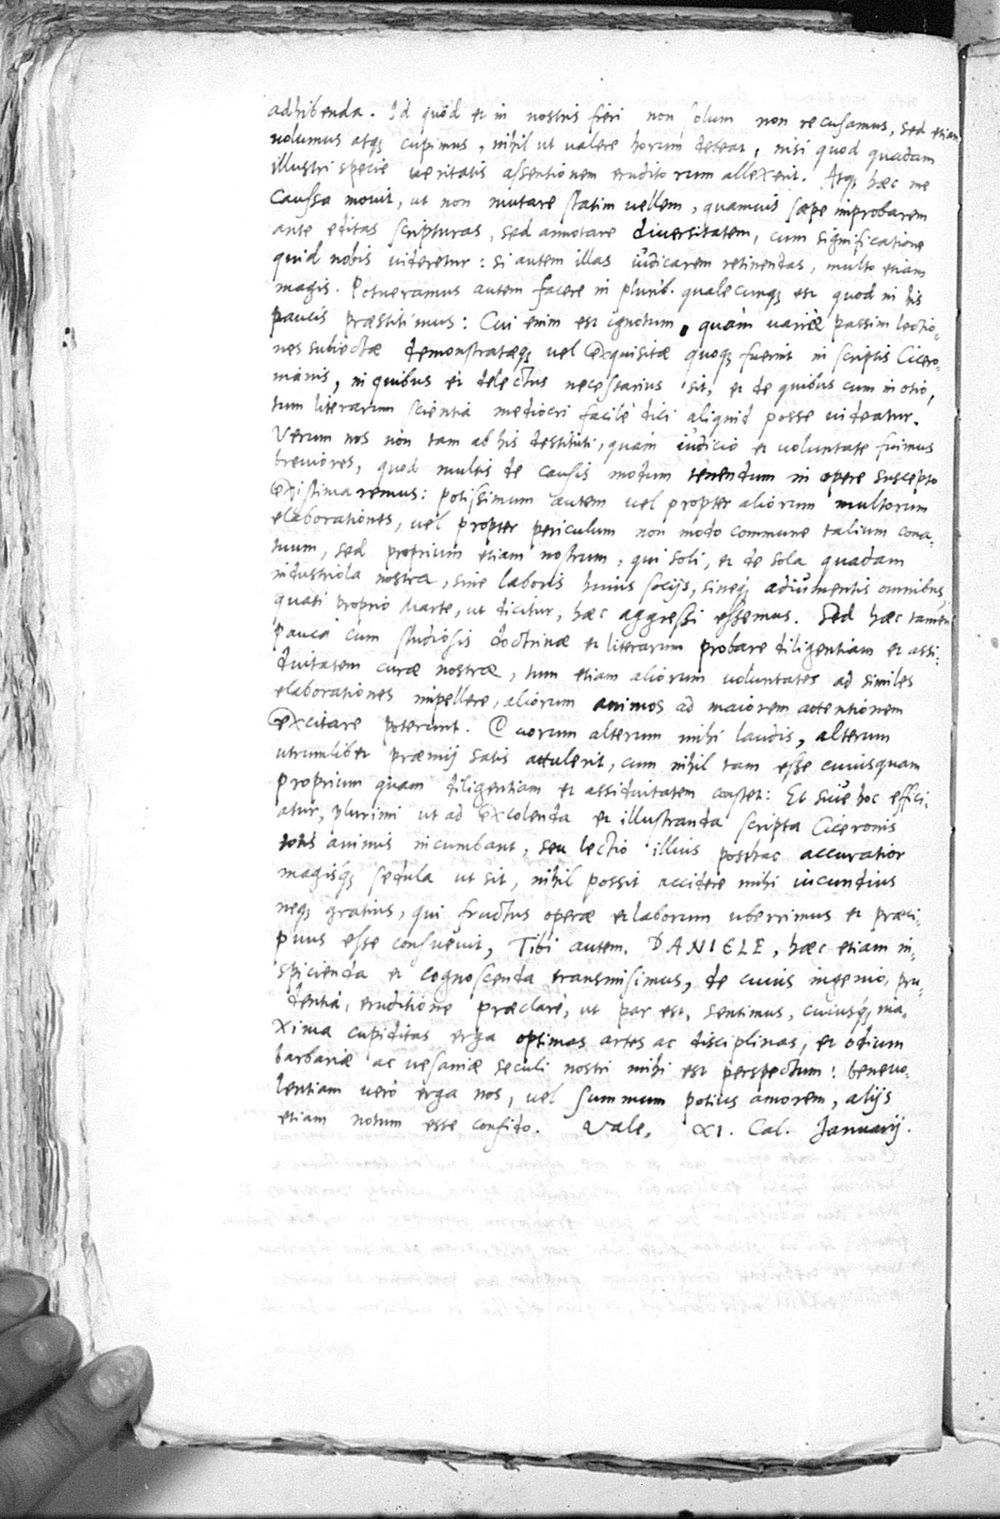 adhibenda. Id quòd et in nostris fieri non solum non recusamus, sed etiam
volumus atq; cupimus, nihil ut valere horum debeat, nisi quod quadam
illustri specie veritatis assentionem eruditorum allexerit. Atq; hæc me
caussa movit, ut non mutare statim vellem, quamvis sæpe improbarem
ante editas scripturas, sed annotare diversitatem, cum significatione
quid nobis videretur: si autem illas iudicarem retinendas, multo etiam
magis. Potueramus autem facere in plurib. qualecunq; est quod in his
paucis præstitimus: Cui enim est ignotum, quàm variæ passim lectio-
nes subiectæ demonstratæq; vel exquisitæ quoq; fuerint in scriptis Cicero-
nianis, in quibus et delectus necessarius sit, et de quibus cum in otio,
tum literarum scientia mediocri facilè dici aliquid posse videatur.
Verum nos non tam ab his destituti, quàm iudicio et voluntate fuimus
breviores, quod multis de causis modum tenendum in opere suscepto
existimaremus: potissimum autem vel propter aliorum multorum
elaborationes, vel propter periculum non modo commune talium cona-
tuum, sed proprium etiam nostrum, qui soli, et de sola quadam
industriola nostra, sine laboris huius socijs, sineq; adiumentis omnibus,
quasi proprio Marte, ut dicitur, hæc aggressi essemus. Sed hæc tamen
pauca cum studiosis doctrinæ et literarum probare diligentiam et assi-
duitatem curæ nostræ, tum etiam aliorum voluntates ad similes
elaborationes impellere, aliorum animos ad maiorem attentionem
excitare poterunt. Quorum alterum mihi laudis, alterum
utrumlibet præmij satis attulerit, cum nihil tam esse cuiusquam
proprium quàm diligentiam et assiduitatem constet: Et sive hoc effici-
atur, plurimi ut ad excolenda et illustranda scripta Ciceronis
totis animis incumbant, seu lectio illius posthac accuratior
magisq; sedula ut sit, nihil possit accidere mihi iucundius
neq; gratius, qui fructus operæ et laborum uberrimus et præci-
puus esse consuevit, Tibi autem, DANIELE, hæc etiam in-
spicienda et cognoscenda transmisimus, de cuius ingenio, pru-
dentia, eruditione præclarè, ut par est, sentimus, cuiusq; ma-
xima cupiditas erga optimas artes ac disciplinas, et odium
barbariæ ac vesaniæ seculi nostri mihi est perspectum: benevo-
lentiam verò erga nos, vel summum potius amorem, alijs
etiam notum esse confido. Vale. XI. Cal. Januarij.